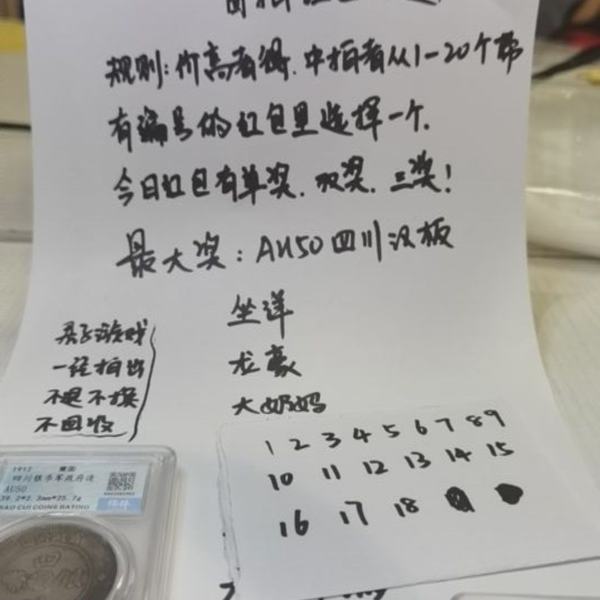 规则:价高者得.中拍者从1-20个带
有编号的红包里选择一个.
今日红包有单奖.双奖.三奖!
最大奖:AU50四川汉板
坐洋
龙豪
大奶妈
亲子游戏
一经拍出
不退不换
不回收
1 2 3 4 5 6 7 8 9
10 11 12 13 14 15
16 17 18
1912
四川银币军政府造
AU50
39.2*2.3mm*25.7g
BAO CUI COINS RATING